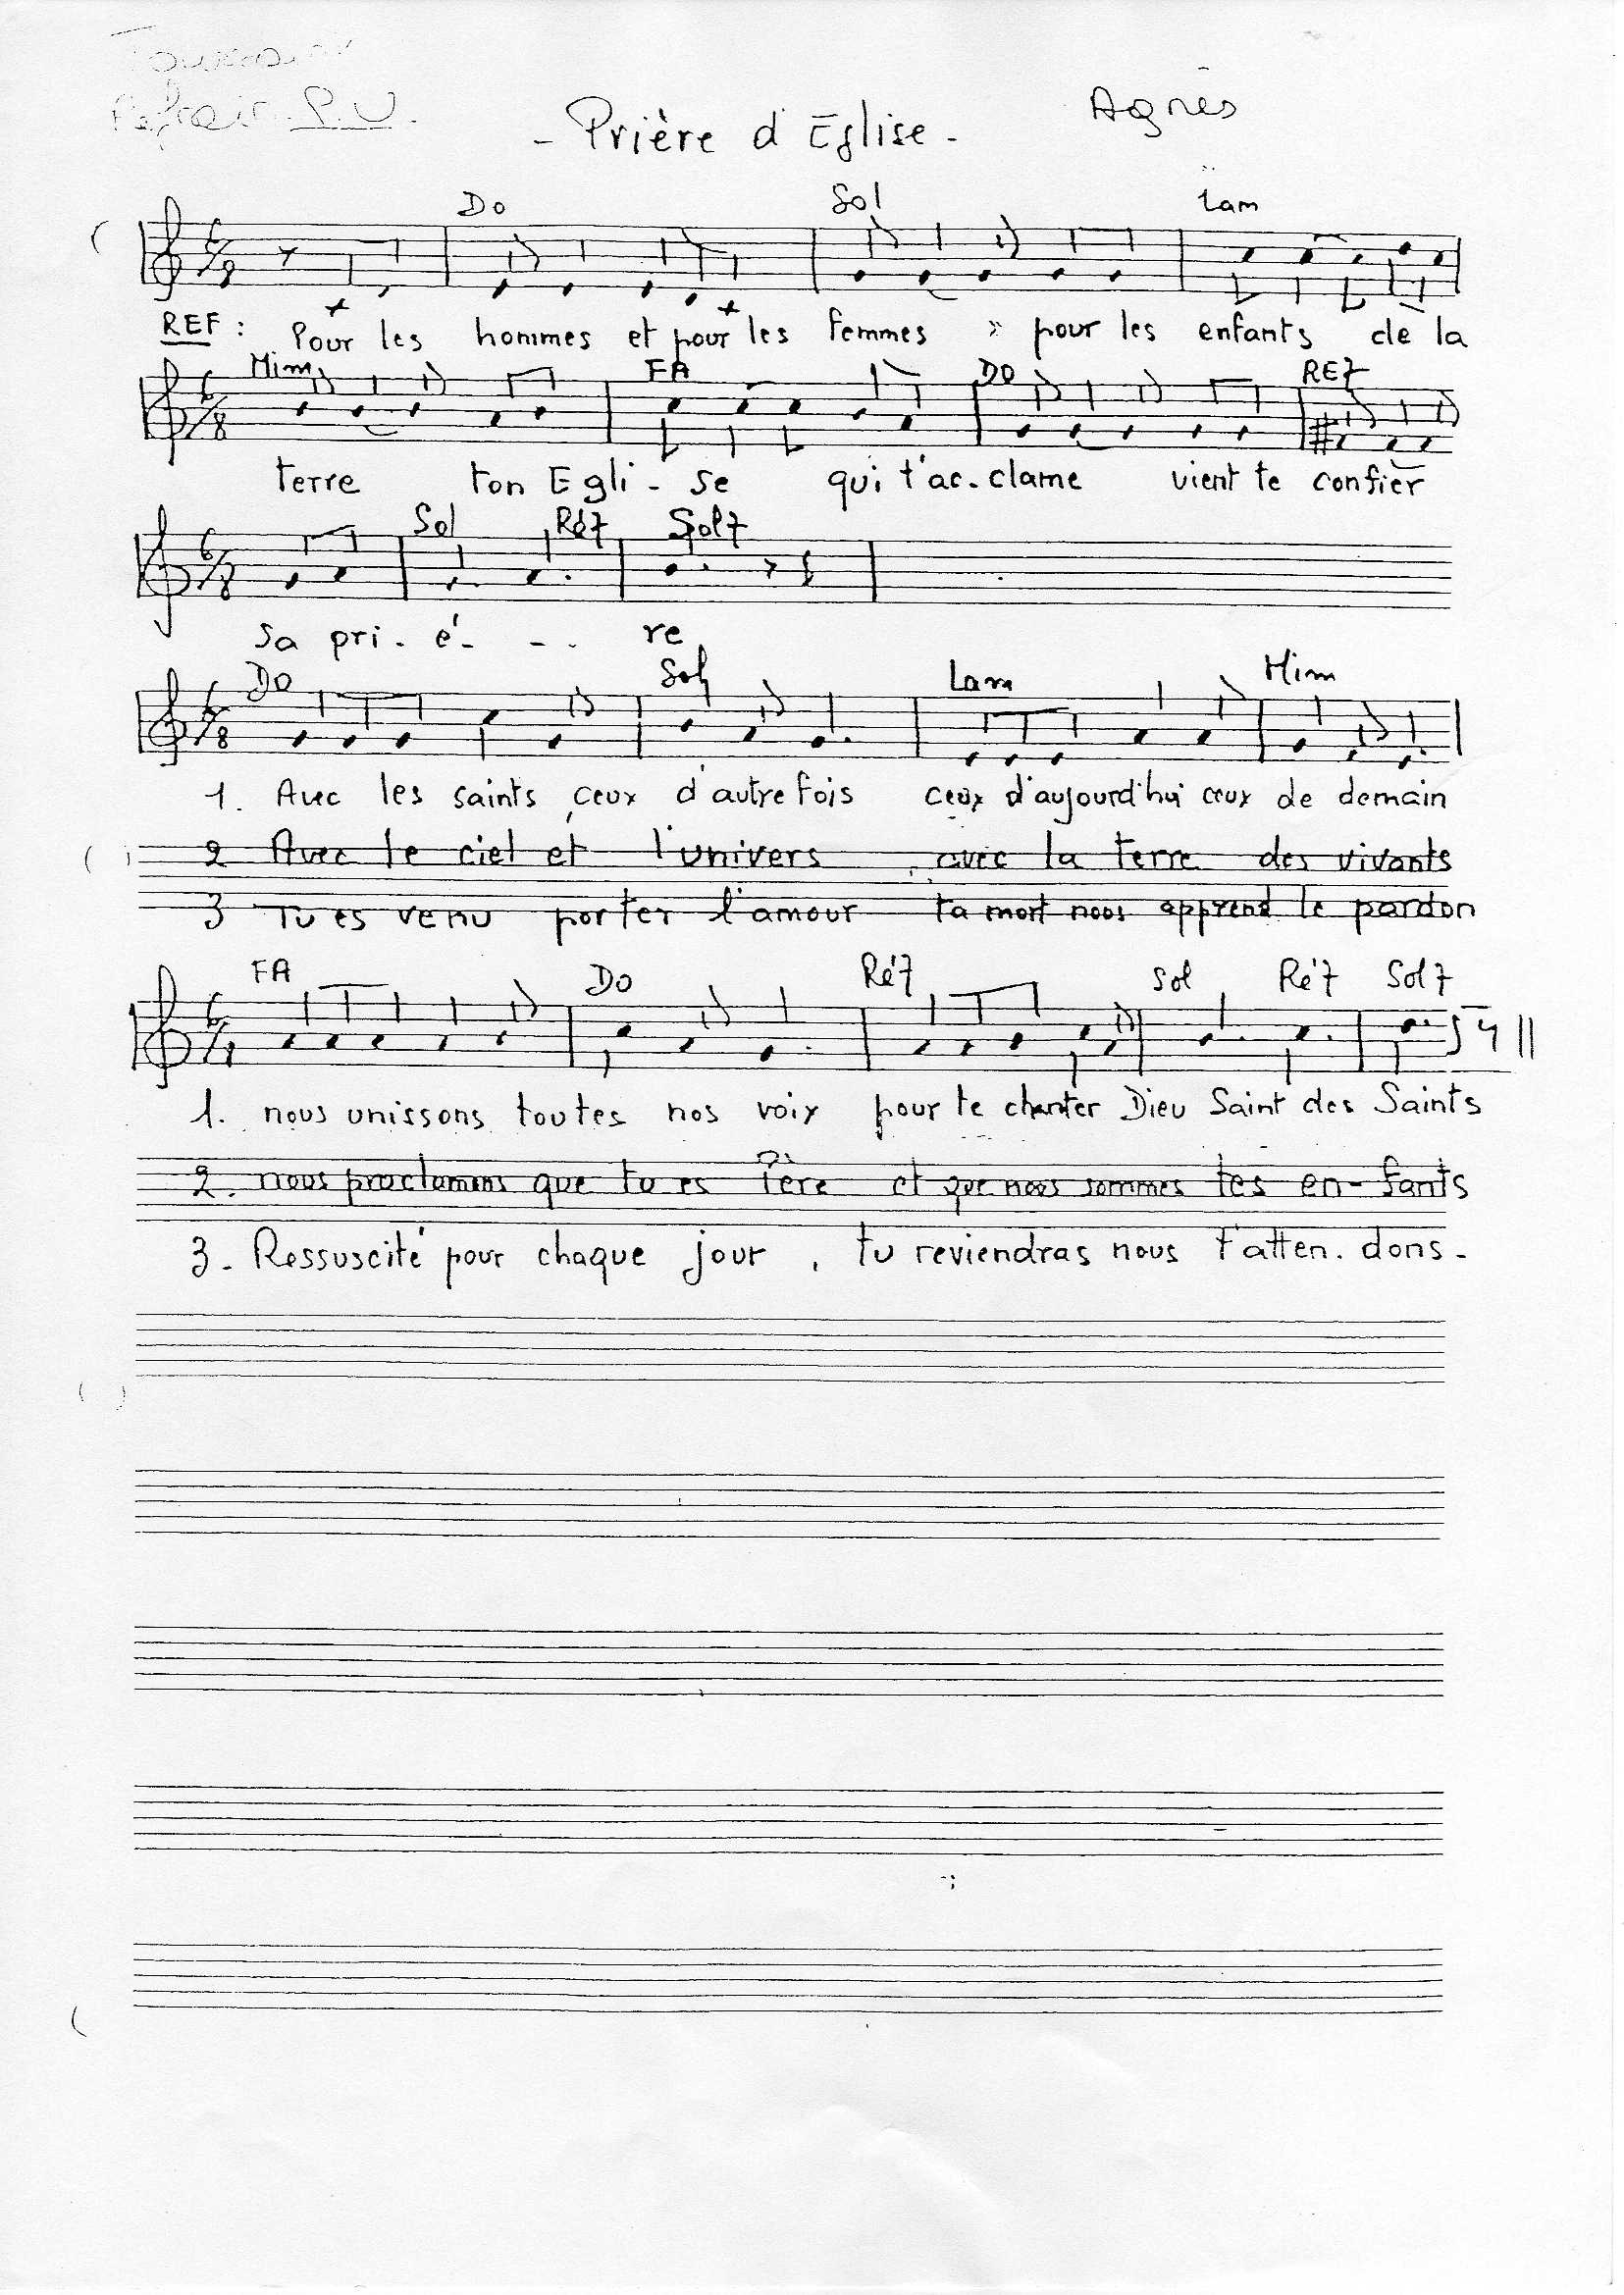 Refrain P.U.
Agnès
- Prière d'Eglise -
Do Sol Lam
REF : Pour les hommes et pour les femmes » pour les enfants de la
Mim FA DO RE7
terre ton Egli - se qui t'ac-clame vient te confier
Sol Ré7 Sol7
sa pri - é - - . re
Do Sol Lam Mim
1. Avec les saints ceux d'autrefois ceux d'aujourd'hui ceux de demain
2 Avec le ciel et l'univers , avec la terre des vivants
3 Tu es venu porter l'amour ta mort nous apprend le pardon
FA Do Ré7 Sol Ré7 Sol7
1. nous unissons toutes nos voix pour te chanter Dieu Saint des Saints
2. nous proclamons que tu es Père et que nous sommes tes en-fants
3 - Ressuscité pour chaque jour , tu reviendras nous t'atten. dons -